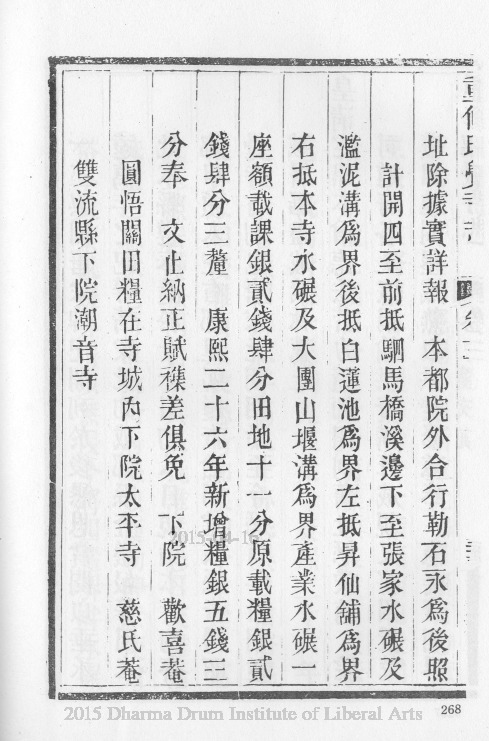 址除據實詳報　本都院外合行勒石永爲後照
計開四至前抵駟馬橋溪邊下至張家水碾及
濫泥溝爲界後抵白蓮池爲界左抵昇仙舖爲界
右抵本寺水碾及大團山堰溝爲界產業水碾一
座額載課銀貳錢肆分田地十一分原載糧銀貳
錢肆分三釐　康熙二十六年新增糧銀五錢三
分奉　文止納正賦襍差俱免　下院　歡喜菴
圓悟關田糧在寺城內下院太平寺　慈氏菴
雙流縣下院潮音寺
2015 Dharma Drum Institute of Liberal Arts
268